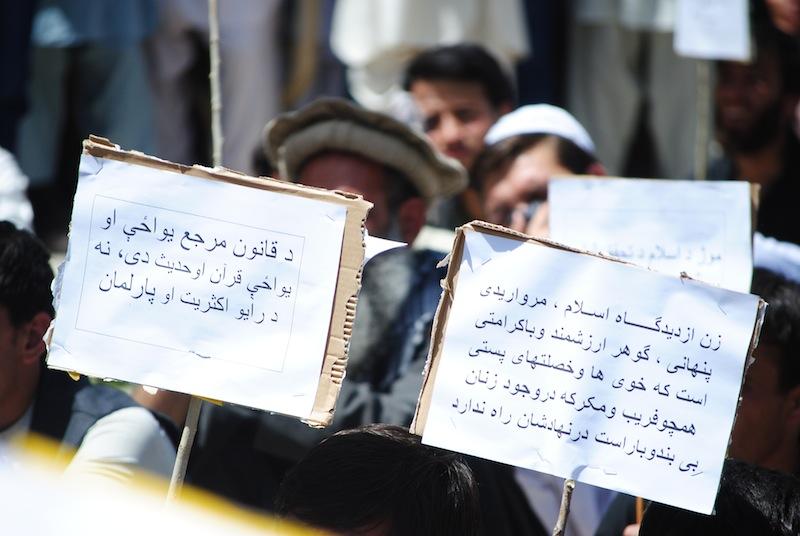 د قانون مرجع يواځې او
يواځې قرآن اوحديث دی، نه
د رايو اکثريت او پارلمان
زن ازديدگــــاه اسـلام ، مرواريدی
پنهانی ، گوهر ارزشمند وباکرامتی
است که خوی ها وخصلتهای پستی
همچوفريب ومکرکه دروجود زنان
بی بندوباراست درنهادشان راه ندارد
مول د اسلام د